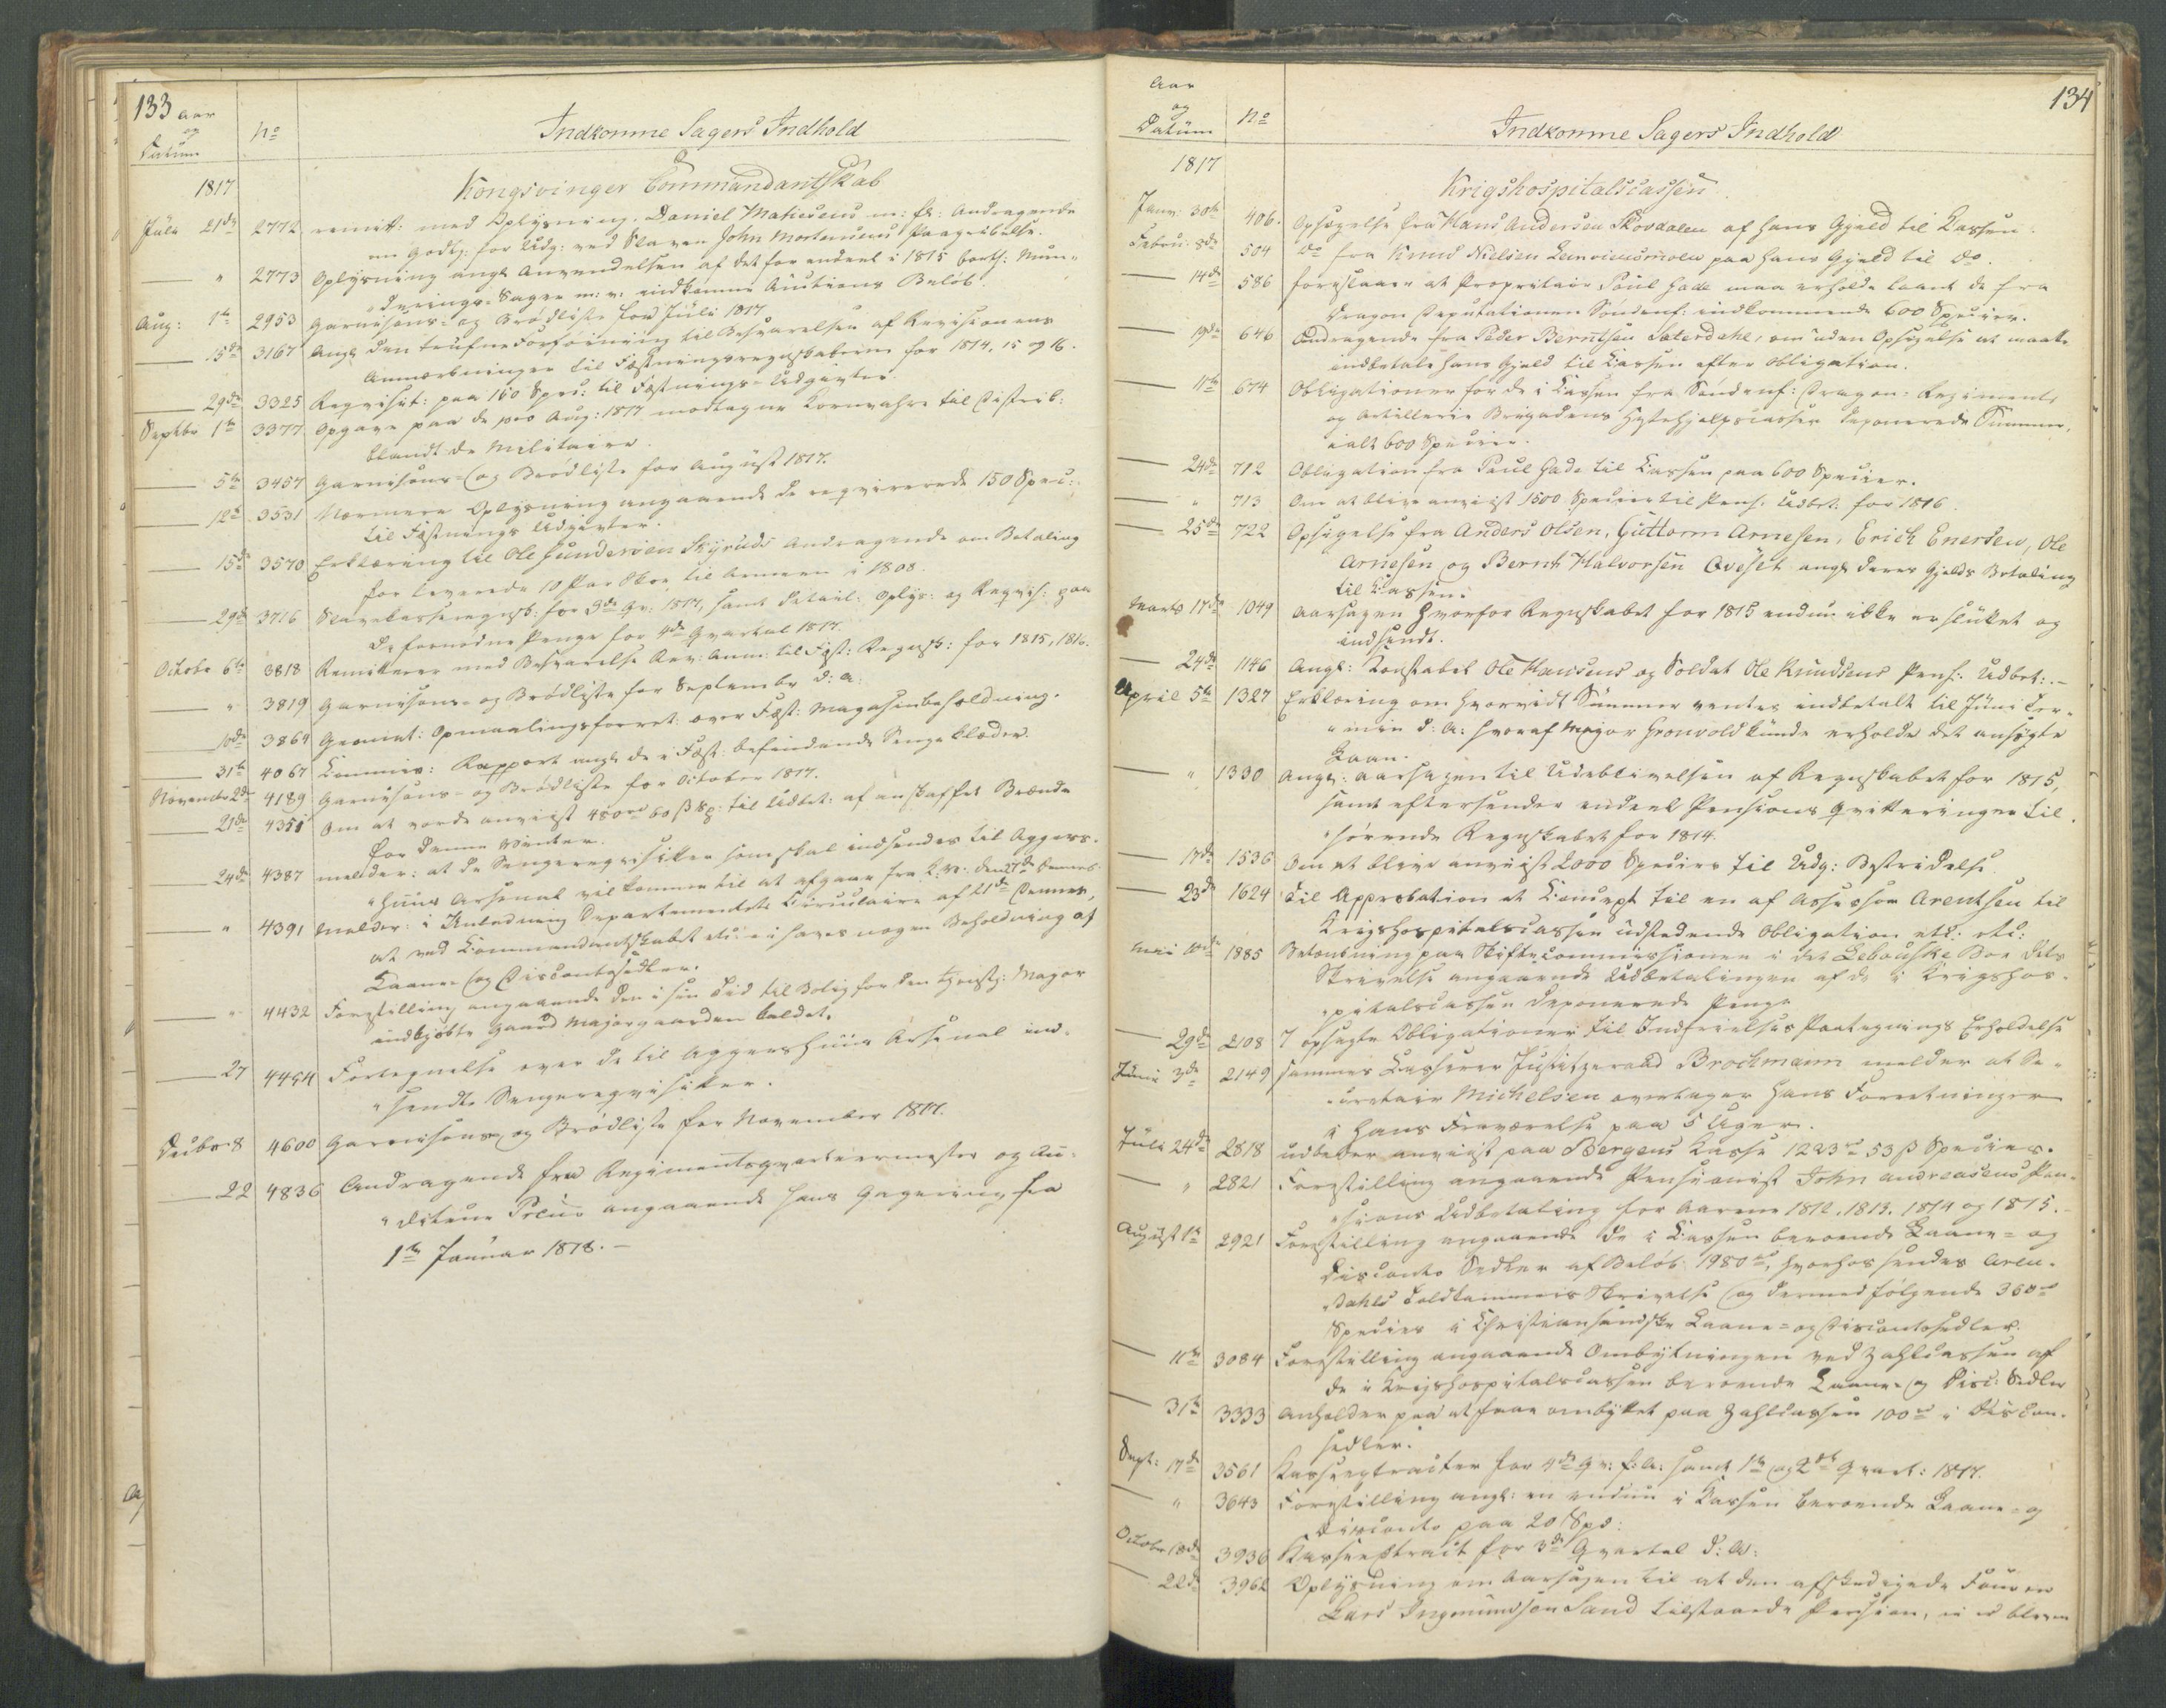 133 Aar
og
Datum
No
Indkomne Sagers Indhold
1817
Kongsvinger Commandantskab
Julii 21de 2772 remitt: med Oplysning. Daniel Mathiesens m: fl: Andragende
om Godtg: for Udg: ved Slaven John Mortensens Paagribelse.
" 2773 Oplysning angl Anvendelsen af det for endeel i 1815 borts: Mun-
"derings-Sager m: v: indkomne Auctions Beløb.
Aug: 1te 2953 Garnisons- og Brødliste for Julii 1817
15de 3167 Angl den trufne Forføining til Besvarelsen af Revisionens
Anmærkninger til Fæstningsregnskaberne for 1814, 15 og 16.
29de 3325 Reqvisit: paa 160 Spec: til Fæstnings-Udgivter.
Septbr 1te 3377 Opgave paa de pro Aug: 1817 modtagne Kornvahre til Distrib:
blandt de Militaire.
5te 3457 Garnisons- og Brødliste for August 1817.
12te 3531 Nærmere Oplysning angaaende de reqvirerede 150 Spec:
til Fæstnings Udgivter.
15de 3570 Erklæring til Ole Gundersen Skyruds Andragende om Betaling
for leverede 10 Par Skoe til Armeen i 1808.
29de 3716 Slavekasseregnsk: for 3de Qv: 1817, samt detail: Oplys: og Reqvis: paa
de fornødne Penge for 4de Qvartal 1817.
Octobr 6te 3818 Remitterer med Besvarelse Rev: Anm: til Fæst: Regnsk: for 1815, 1816.
" 3819 Garnisons- og Brødliste for September d: A:
10de 3864 Geomet: Opmaalingsforret: over Fæst: Magasinbeholdning.
31te 4067 Commiss: Rapport angl de i Fæst: befindende Senge klæder.
Novembr 2de 4189 Garnisons- og Brødliste for October 1817.
21de 4351 Om at vorde anviist 480 60 ß Sp: til Udbet: af anskaffet Brænde
for denne Vinter.
24de 4387 melder: at de Sengereqvisiter som skal indsendes til Aggers-
"huus Arsenal vil komme til at afgaae fra K.V. den 27de dennes
" 4391 Melder: i Anledning Departementets Circulaire af 21de dennes,
at ved Commandantskabet ei haves nogen Beholdning af
Laane- og Discontosedler.
" 4432 Forestilling angaaende den i sin Tid til Bolig for den tjenstg: Major
indkjøbte Gaard Majorgaarden kaldet.
27 4454 Fortegnelse over de til Aggershuus Arsenal ind-
"sendte Sengereqvisiter.
Decbr 8 4600 Garnisons- og Brødliste for November 1817.
22 4836 Andragende fra Regimentsqvarteermester og Au-
"diteur Preus angaaende hans Gagering fra
1te Januar 1818.-
Aar
og
Datum
No
134
Indkomne Sagers Indhold
1817
Krigshospitalscassen
Janv: 30te 406. Opsigelse fra Hans Andersen Skovdalen af hans Gjeld til Kassen.
Febru: 8de 504 Do fra Knud Nielsen paa hans Gjeld til do.
14de 586 foreslaaer at Proprietair Poul Gade maa erholde laant de fra
Dragon Deputationen Søndenf: indkommende 600 Specier.
19de 646 Andragende fra Peder Berntsen Sæterdahl, om uden Opsigelse at maatte
indbetale hans Gjeld til Cassen efter Obligation.
11te 674 Obligationer for de i Cassen fra Søndenf: Dragon-Regiments
og Artillerie Brigadens Hestehjelpscasser deponerede Summer,
ialt 600 Specier.
24de 712 Obligation fra Poul Gade til Cassen paa 600 Specier.
" 713 Om at blive anviist 1500 Specier til Pens: Udbet: for 1816.
25de 722 Opsigelse fra Anders Olsen, Guttorm Arnesen, Erich Enersen, Ole
Arnesen og Bernt Halvorsen Qveset angl deres Gjelds Betaling
til Cassen.
Marts 17de 1049 Aarsagen hvorfor Regnskabet for 1815 endnu ikke er sluttet og
indsendt.
24de 1146 Angl: Constabel Ole Hansens og Soldat Ole Knudsens Pens: Udbet:.-
April 5te 1327 Erklæring om hvorvidt Summer ventes indbetalt til Juni Ter-
"min d: A: hvoraf Major Gronvold kunde erholde det ansøgte
Laan.
" 1330 Angl: Aarsagen til Udeblivelsen af Regnskabet for 1815,
samt eftersender endeel Pensions Qvitteringer til
"hørende Regnskabet for 1814.
17de 1536 Om at blive anviist 2000 Specier til Udg: Bestridelse
23de 1624 Til Approbation et Concept til en af Assessor Arentsen til
Krigshospitalscassen udstedende Obligation etc: etc:
Mai 10de 1885 Betænkning paa Skiftecommissionen i det Lebouske Boe dets
Skrivelse angaaende Udbetalingen af de i Krigshos-
"pitalscassen deponerede Penge
29de 2108 7 opsagte Obligationer til Indfrielses Paategnings Erholdelse
Junii 3de 2149 sammes Casserer Justitzeraad Brochmann melder at Se-
"cretair Michelsen overtager hans Forretninger
i hans Fraværelse paa 5 Uger.
Julii 24de 2818 udbeder anviist paa Bergens Kasse 1223 53 ß Species.
" 2821 Forestilling angaaende Pensionist John Andreasens Pen-
"sions Udbetaling for Aarene 1812, 1813, 1814 og 1815.-
August 1te 2921 Forestilling angaaende de i Cassen beroende Laane- og
Disconto Sedler af Beløb 1980, hvorhos sendes Aren-
"dahls Toldkammers Skrivelse og dermed følgende 360
Specier i Christiansandske Laane- og Discontosedler.
11te 3084 Forestilling angaaende Ombytningen ved Zahlcassen af
de i Krigshospitalscassen beroende Laane- og Disc: Sedler
31te 3333 anholder paa at faae ombyttet paa Zahlcassen 100 i Discon-
sedler.
Sept: 17de 3561 Kasseextracter for 4de Qv: f: A: samt 1te og 2det Qvart: 1817.
" 3643 Forestilling angl: en endnu i Kassen beroende Laane- og
Disconto paa 20 Spd:
Octobr 18de 3936 Kasseextract for 3de Qvartal d: A:
22de 3962 Oplysning om Aarsagen til at den afskedigede
Lars Ingemundsen Sand tilstaaede Pension, ei er bleven